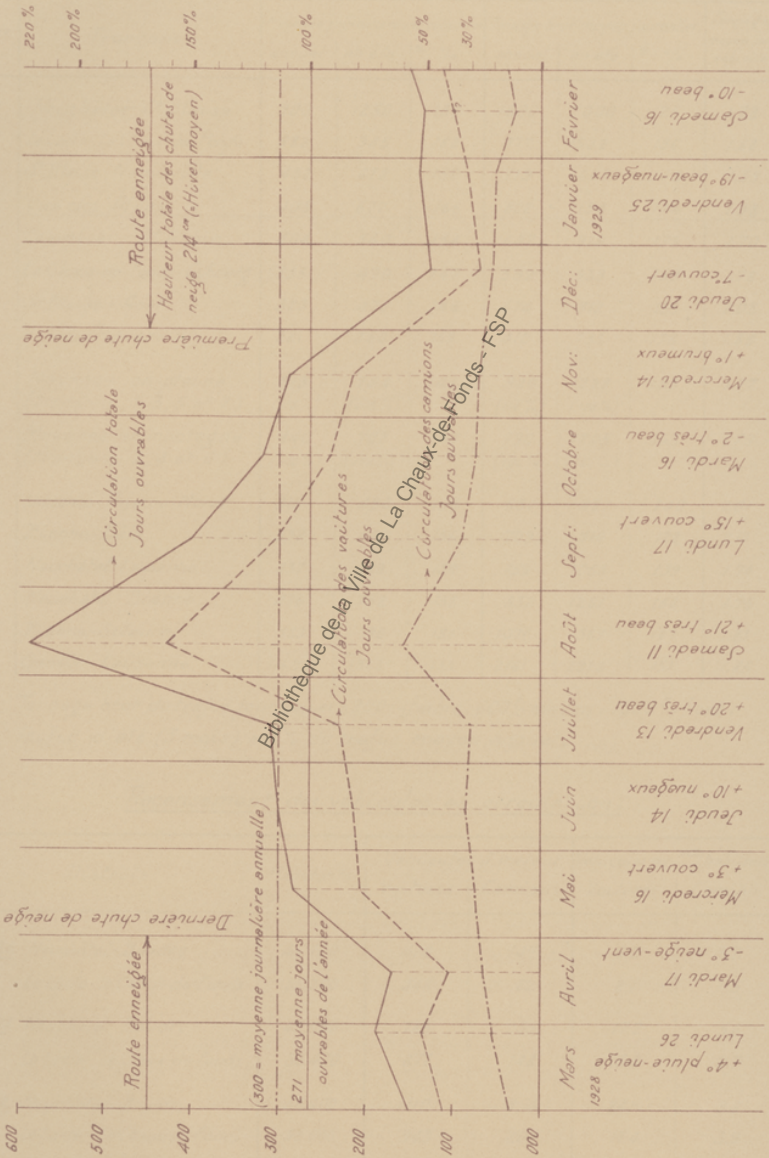 600
500
400
300
200
100
000
220%
200%
150%
100%
50%
30%
Route enneigée
Dernière chute de neige
(300 = moyenne journalière annuelle)
271 moyenne jours
ouvrables de l'année
Circulation totale
Jours ouvrables
Circulation des voitures
Jours ouvrables
Circulation des camions
Jours ouvrables
Première chute de neige
Route enneigée
Hauteur totale des chutes de
neige 214 cm (Hiver moyen)
Mars
Avril
Mai
Juin
Juillet
Août
Sept:
Octobre
Nov:
Déc:
Janvier
Février
1928
1929
Lundi 26
+4° pluie-neige
Mardi 17
-3° neige-vent
Mercredi 16
+3° couvert
Jeudi 14
+10° nuageux
Vendredi 13
+20° très beau
Samedi 11
+21° très beau
Lundi 17
+15° couvert
Mardi 16
-2° très beau
Mercredi 14
+1° brumeux
Jeudi 20
-7° couvert
Vendredi 25
-19° beau-nuageux
Samedi 16
-10° beau
Bibliothèque de la Ville de La Chaux-de-Fonds - FSP